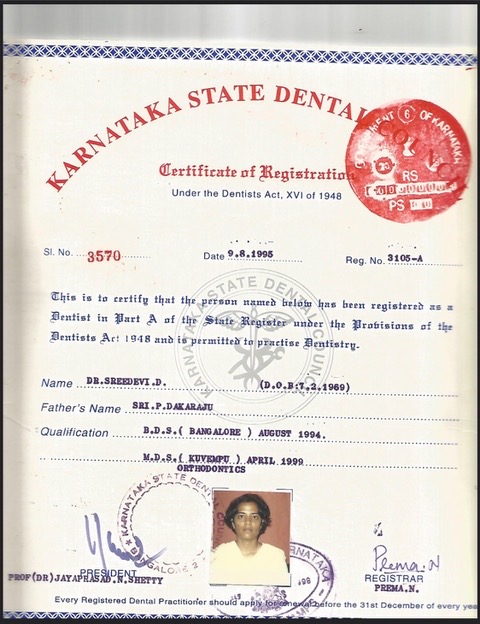 KARNATAKA STATE DENTAL COUNCIL
GOVERNMENT OF KARNATAKA
6
RS
PS
Certificate of Registration
Under the Dentists Act, XVI of 1948
Sl. No. 3570 Date 9.8.1995 Reg. No. 3105-A
This is to certify that the person named below has been registered as a
Dentist in Part A of the State Register under the Provisions of the
Dentists Act 1948 and is permitted to practise Dentistry.
KARNATAKA STATE DENTAL COUNCIL
Name DR.SREEDEVI.D. (D.O.B:7.2.1969)
Father's Name SRI.P.DAKARAJU
Qualification B.D.S.( BANGALORE ) AUGUST 1994.
M.D.S.( KUVEMPU ) APRIL 1999
ORTHODONTICS
KARNATAKA STATE DENTAL
BANGALORE
KARNATAKA
Prema.N
PRESIDENT
PROF(DR)JAYAPRASAD.N.SHETTY
REGISTRAR
PREMA.N.
Every Registered Dental Practitioner should apply for renewal before the 31st December of every year